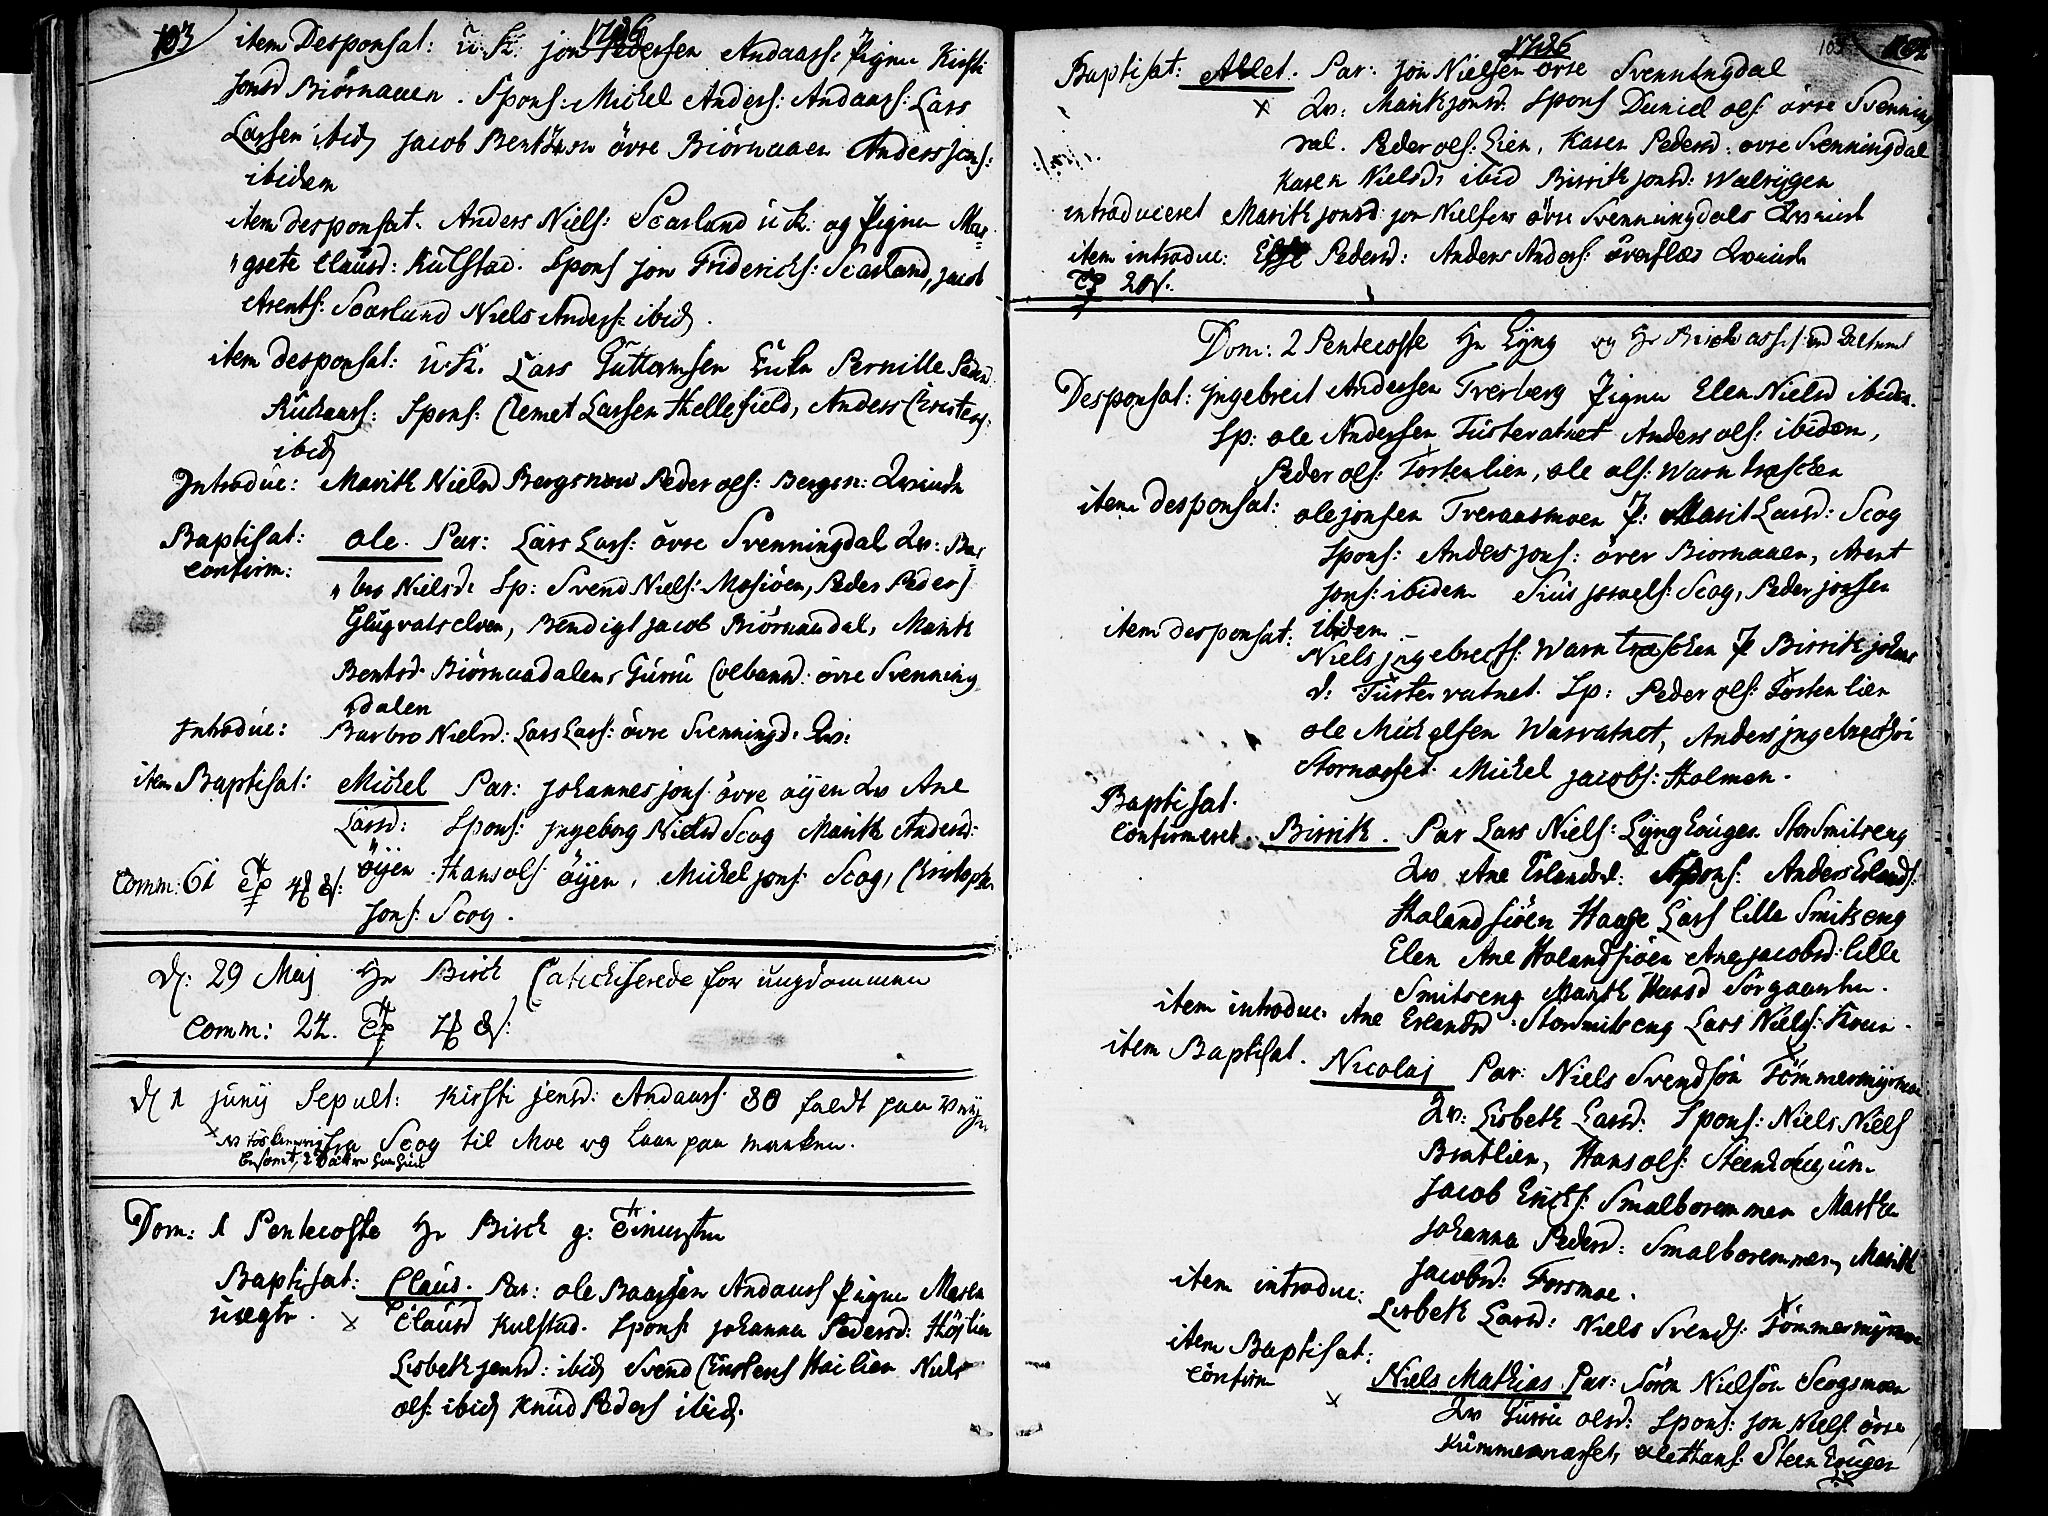 103
1786
item Desponsat: u.K. jon Pedersen Andaass: Pigen Kirsti
Jonsd Biörnaaen. Spons: Mickel Anders: Andaass: Lars
Larsen ibid, Jacob Bentsen övre Biörnaaen Anders jons:
ibidem
item desponsat. Anders Niels: Scarland u.K: og Pigen Mar-
"grete Clausd: Kulstad. Spons jon Friderichs: Scarland, jacob
Arents: Scarland Niels Anders: ibid.
item desponsat: u:K. Lars Guttormsen Pernille Peders
Spons: Clemet Larsen Hellefield, Anders Christens:
ibid
Introdue: Marith Nielsd Bergsnew Peder ols: Bergsn: Qvinde
Baptisat: ole. Par: Lars Lars: övre Svenningdal Qv: Bar
confirm: "bro Nielsd: Sp: Svend Niels: Mosiöen, Peder Peders
Glugvatselven, Bendigt jacob Biörnaadal, Marith
Bentsd Biörnaadalen, Gurru Colbannd: övre Svenning
dalen
Introdue: Barbro Nielsd: Lars Lars: övre Svenningd: Qv:
item Baptisat: Mickel Par: Johannes jons: övre öijen Qv Ane
Larsd: Spons: Jngeborg Nielsd Scog Marith Andersd:
öijen Hans ols: öijen, Mickel jons: Scog, Christoph.
Jons: Scog.
Comm: 61
D: 29 Maj Hr Birch Catechiserede for ungdommen
Comm: 24.
D 1 junij Sepult: Kirsti jensd: Andaass: 80 faldt paa Veijen
fra Scog til Moe og laae paa marken.
Dom: 1 Pentecoste Hr Birch g: Tienesten
Baptisat: Claus. Par: ole Baarsen Andaass Pigen Maren
uægte. x Clausd Kulstad. Spons: johanna Pedersd: Höjlien
Lisbeth jensd: ibid Svend Christens Hailien Niels
ols: ibid Knud Peders ibid.
1786
103
102
Baptisat: Allet. Par: jon Nielsen övre Svenningdal
x Qv: Marith jonsd. Spons Daniel ols: övre Svenning
dal. Peder ols: Lien, Karen Pedersd: övre Svenningdal
Karen Nielsd: ibid Birrith jonsd: Walrijgen
introduceret Marith jonsd: jon Nielsens övre Svenningdals Qvinde
item introduc: Else Pedersd: Anders Anders: överflæs Qvinde
20 s.
Dom: 2 Pentecoste Hr Lyng og Hr Birch assis: ved Altert
Desponsat: Jngebreit Andersen Tverberg Pigen Elen Nielsd ibidm.
Sp: ole Andersen Fustervatnet Anders ols: ibidem,
Peder ols: Forstenlien, ole ols: Warntræschen
item desponsat: ole jonsen Tveraasmoen P: Marit Larsd: Scog
Spons: Anders jons: över Biornaaen, Arent
Jons: ibidem Scog, Peder jonsen
ibidem
item desponsat: Niels jngebrects: Warntræschen P Birrith johns
d: Fustervatnet. Sp: Peder ols: Forstenlien
ole Mickelsen Warvatnet, Anders jngebrectsön
Stornæsset. Mickel jacobs: Holmen.
Baptisat.
Confirmeret. Birrith. Par Lars Niels: Lynghougen StorSmitseng
Qv Ane Erlandsd: Spons: Anders Erlands:
Halandsiöen Haage Lars lille Smitseng
Elen Ane Halandsiöen Ane jacobsd: lille
Smitseng Marith Hansd Sörgaarden.
item introduc: Ane Erlandsd: Storsmitseng Lars Niels: Kone.
item Baptisat. Nicolaj Par: Niels Svendsön Tömmermijrmoe
Qv: Lisbeth Larsd: Spons: Niels Niels
Bratlien, Hans ols: Steenhougen
jacob Ericks: Smalboremmen Marthe
johanna Pedersd: Smalboremmen, Marith
jacobsd: Forsmoe.
item introduc: Lisbeth Larsd: Niels Svends: Tömmermyrmoe
item Baptisat:
confirm Niels Mathias. Par: Sören Nielsön Scogsmoen
x Qv Gurru olsd: Spons: jon Niels: övre
Kummernæsset, ole Hans: Steenhougen